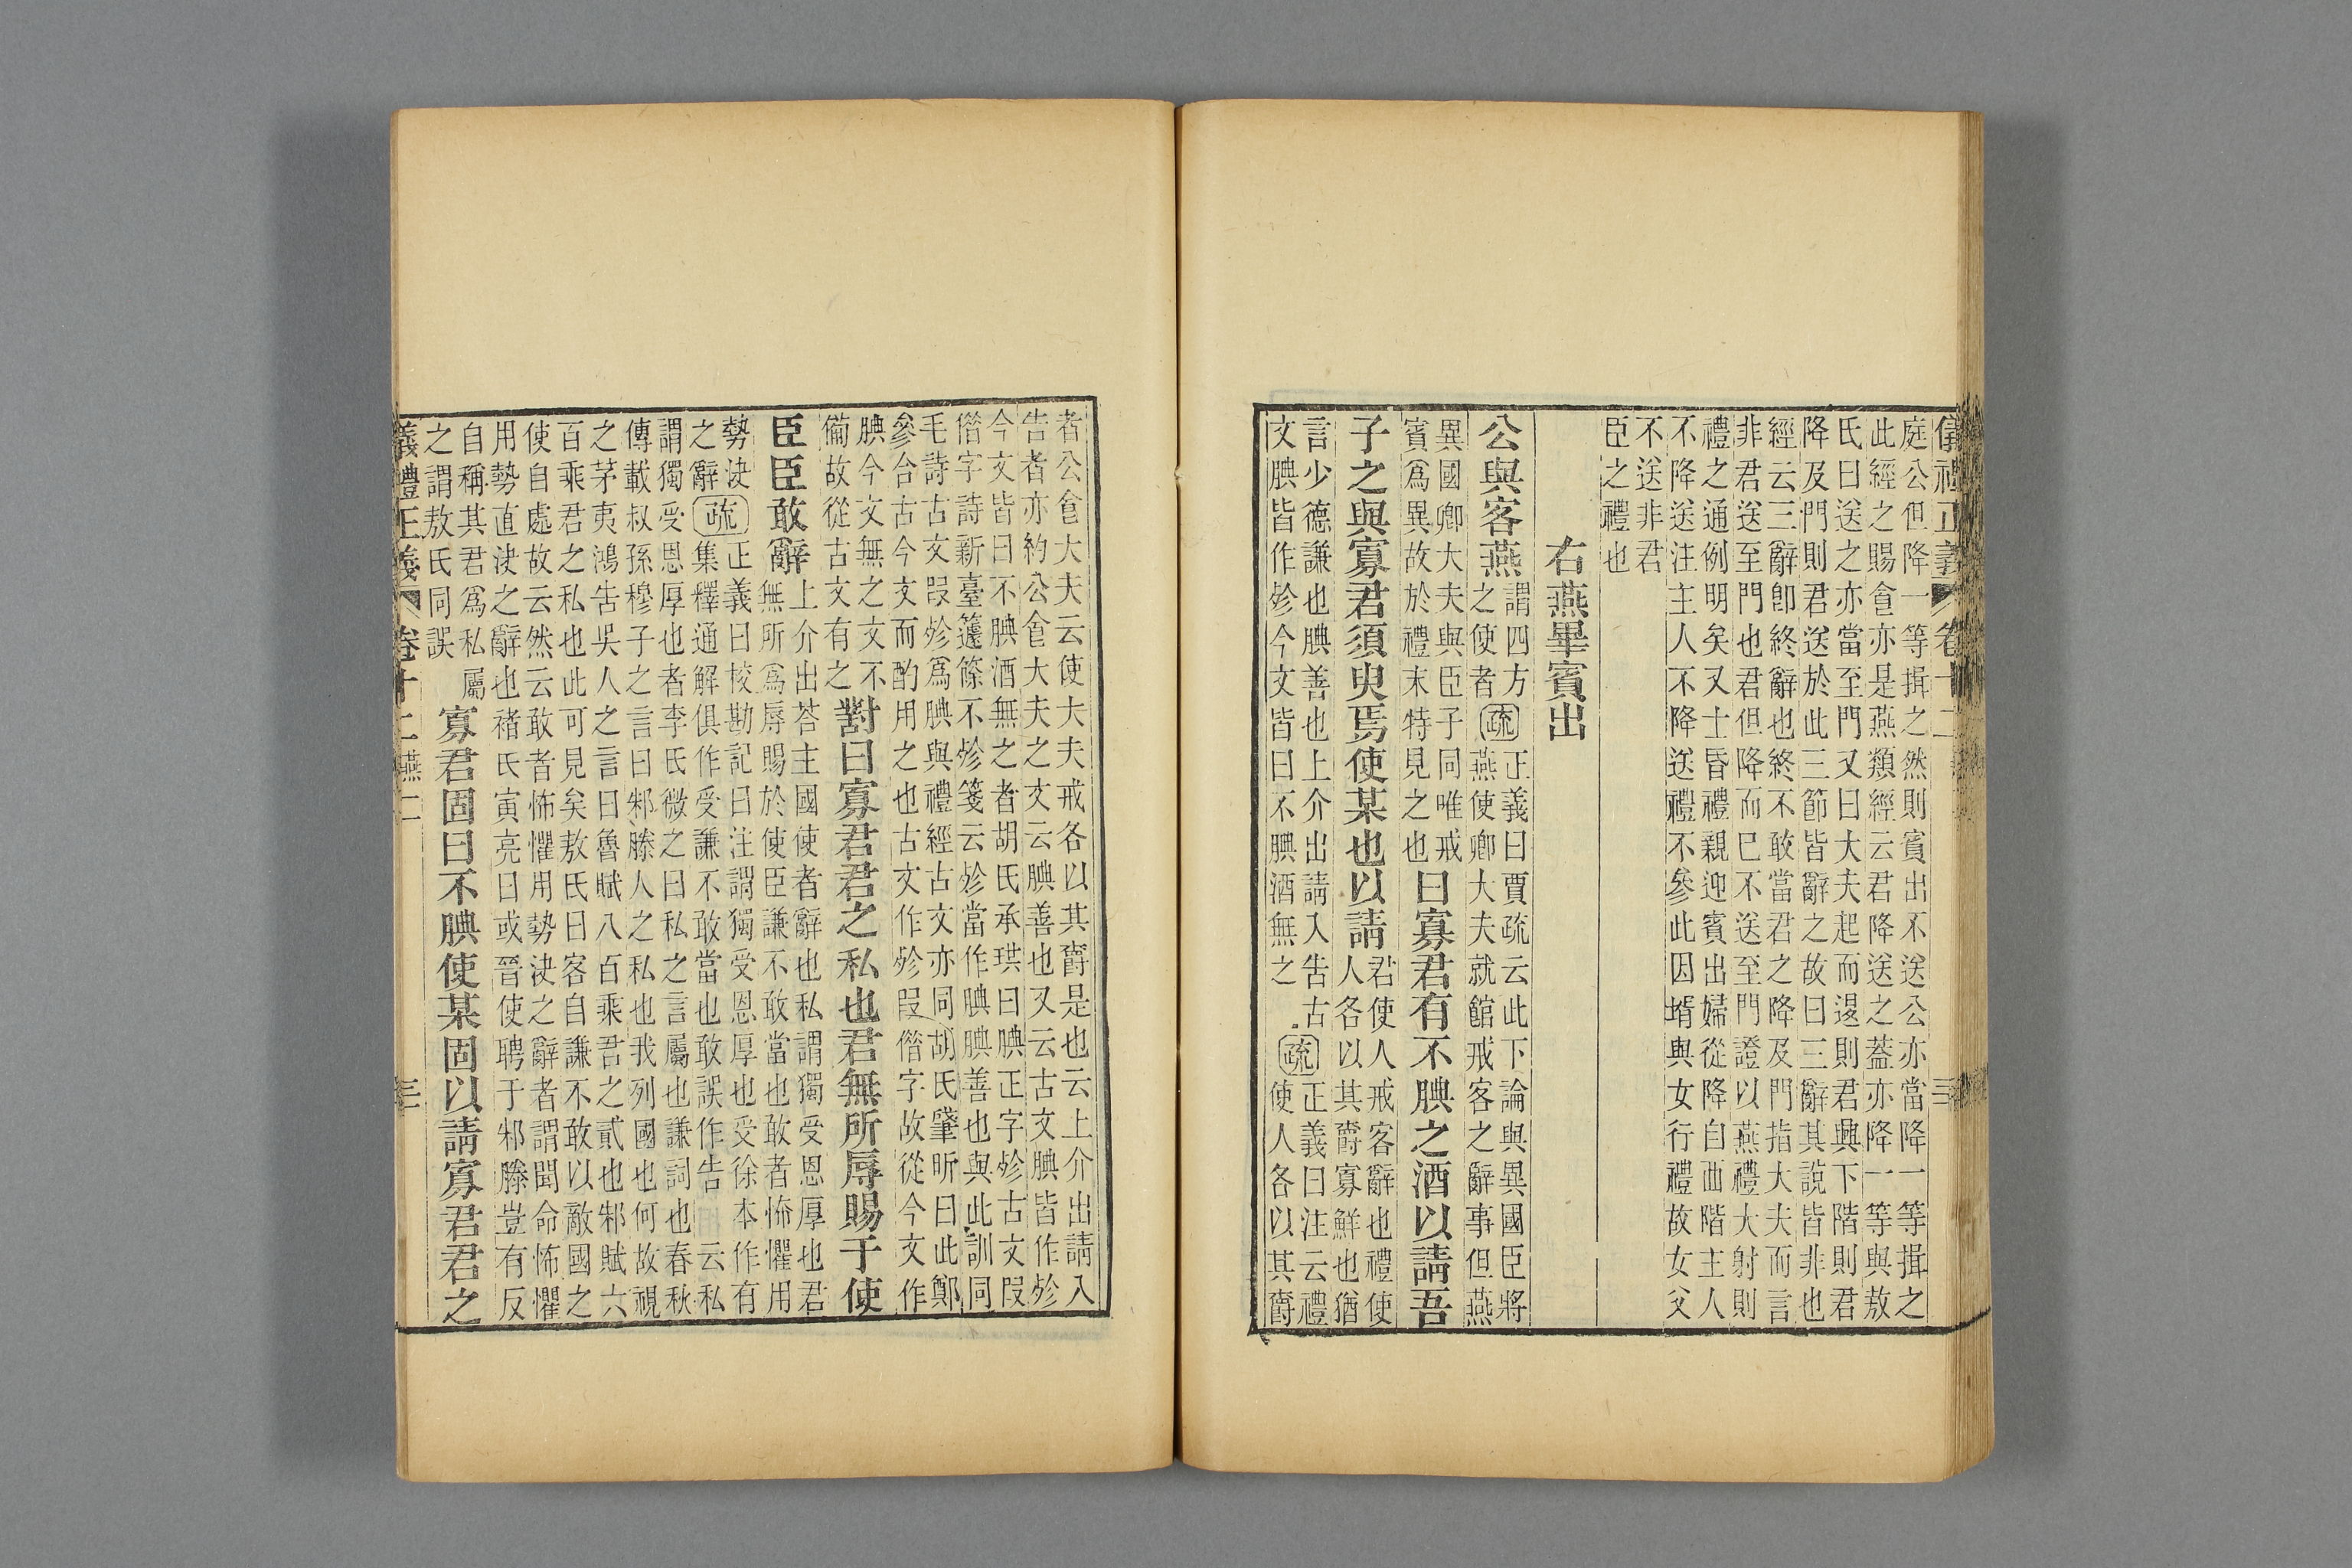 儀禮正義 卷十二
庭公但降一等揖之然則賓出不送公亦當降一等揖之
此經之賜食亦是燕類經云君降送之蓋亦降一等與敖
氏曰送之亦當至門又曰大夫起而退則君興下階則君
降及門則君送於此三節皆辭之故曰三辭其說皆非也
經云三辭卽終辭也終不敢當君之降及門指大夫而言
非君送至門也君但降而已不送至門證以燕禮大射則
禮之通例明矣又士昏禮親迎賓出婦從降自西階主人
不降送注主人不降送禮不參此因壻與女行禮故女父
不送非君
臣之禮也
右燕畢賓出
公與客燕
謂四方
之使者
疏
正義曰賈疏云此下論與異國臣將
燕使卿大夫就館戒客之辭事但燕
異國卿大夫與臣子同唯戒
賓爲異故於禮末特見之也
曰寡君有不腆之酒以請吾
子之與寡君須臾焉使某也以請
君使人戒客辭也禮使
人各以其爵寡鮮也猶
言少德謙也腆善也上介出請入告古
文腆皆作殄今文皆曰不腆酒無之
疏
正義曰注云禮
使人各以其爵
者公食大夫云使大夫戒各以其爵是也云上介出請入
告者亦約公食大夫之文云腆善也又云古文腆皆作殄
今文皆曰不腆酒無之者胡氏承珙曰腆正字殄古文叚
偺字詩新臺籧篨不殄箋云殄當作腆腆善也與此訓同
毛詩古文叚殄爲腆與禮經古文亦同胡氏肇昕曰此鄭
參合古今文而酌用之也古文作殄叚偺字故從今文作
腆今文無之文不
備故從古文有之
對曰寡君君之私也君無所辱賜于使
臣臣敢辭
上介出荅主國使者辭也私謂獨受恩厚也君
無所爲辱賜於使臣謙不敢當也敢者怖懼用
勢決
之辭
疏
正義曰校勘記曰注謂獨受恩厚也受徐本作有
集釋通解俱作受謙不敢當也敢誤作告 云私
謂獨受恩厚也者李氏微之曰私之言屬也謙詞也春秋
傳載叔孫穆子之言曰邾滕人之私也我列國也何故視
之茅夷鴻吿吳人之言曰魯賦八百乘君之貳也邾賦六
百乘君之私也此可見矣敖氏曰客自謙不敢以敵國之
使自處故云然云敢者怖懼用勢決之辭者謂聞命怖懼
用勢直決之辭也褚氏寅亮曰或晉使聘于邾滕豈有反
自稱其君爲私屬
之謂敖氏同誤
寡君固曰不腆使某固以請寡君君之
義禮正義 卷十二 燕二